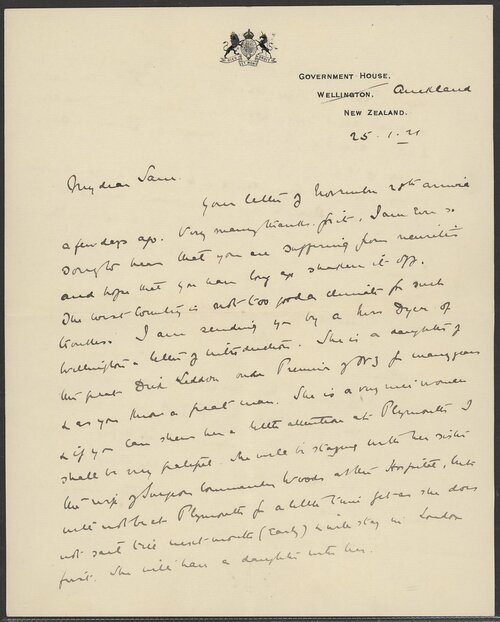 GOVERNMENT HOUSE,
WELLINGTON. Auckland
NEW ZEALAND.
25.1.21
My dear Sam.
Your letter of November 20th arrived
a few days ago. Very many thanks for it, I am ever so
sorry to hear that you are suffering from neuritis
and hope that you have long ago shaken it off.
The West Country is not too good a climate for such
troubles. I am sending you by a Mrs Dyer of
Wellington a letter of introduction. She is a daughter of
the great Dick Seddon Premier of NZ for many years
& as you know a great man. She is a very nice woman
& if you can shew her a little attention at Plymouth I
shall be very grateful. She will be staying with her sister
the wife of Surgeon Commander Woods at the Hospital, but
will not be at Plymouth for a little time yet as she does
not sail till next month (Early) & will stay in London
first. She will have a daughter with her.